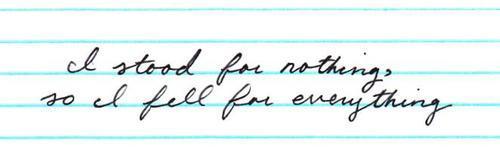 I stood for nothing,
so I fell for everything